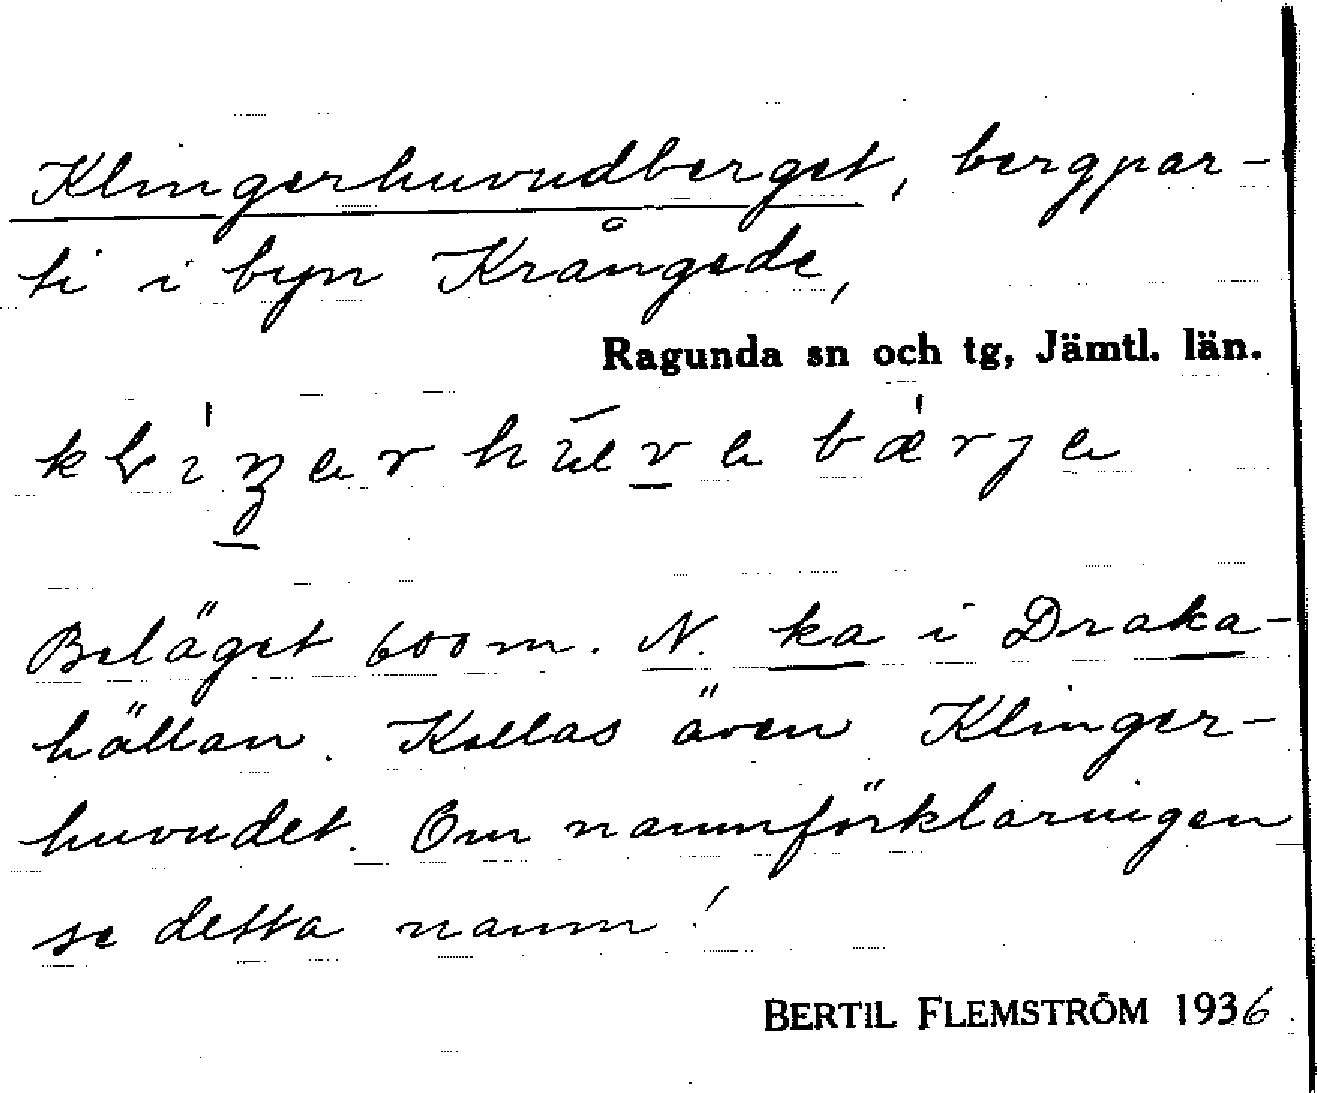 Klingerhuvudberget, bergpar-
ti i byn Krångede,
Ragunda sn och tg, Jämtl. län.
Beläget 600 m. N. ka i Draka-
hällan. Kallas även Klinger-
huvudet. Om namnförklaringen
se detta namn!
BERTIL FLEMSTRÖM 1936.